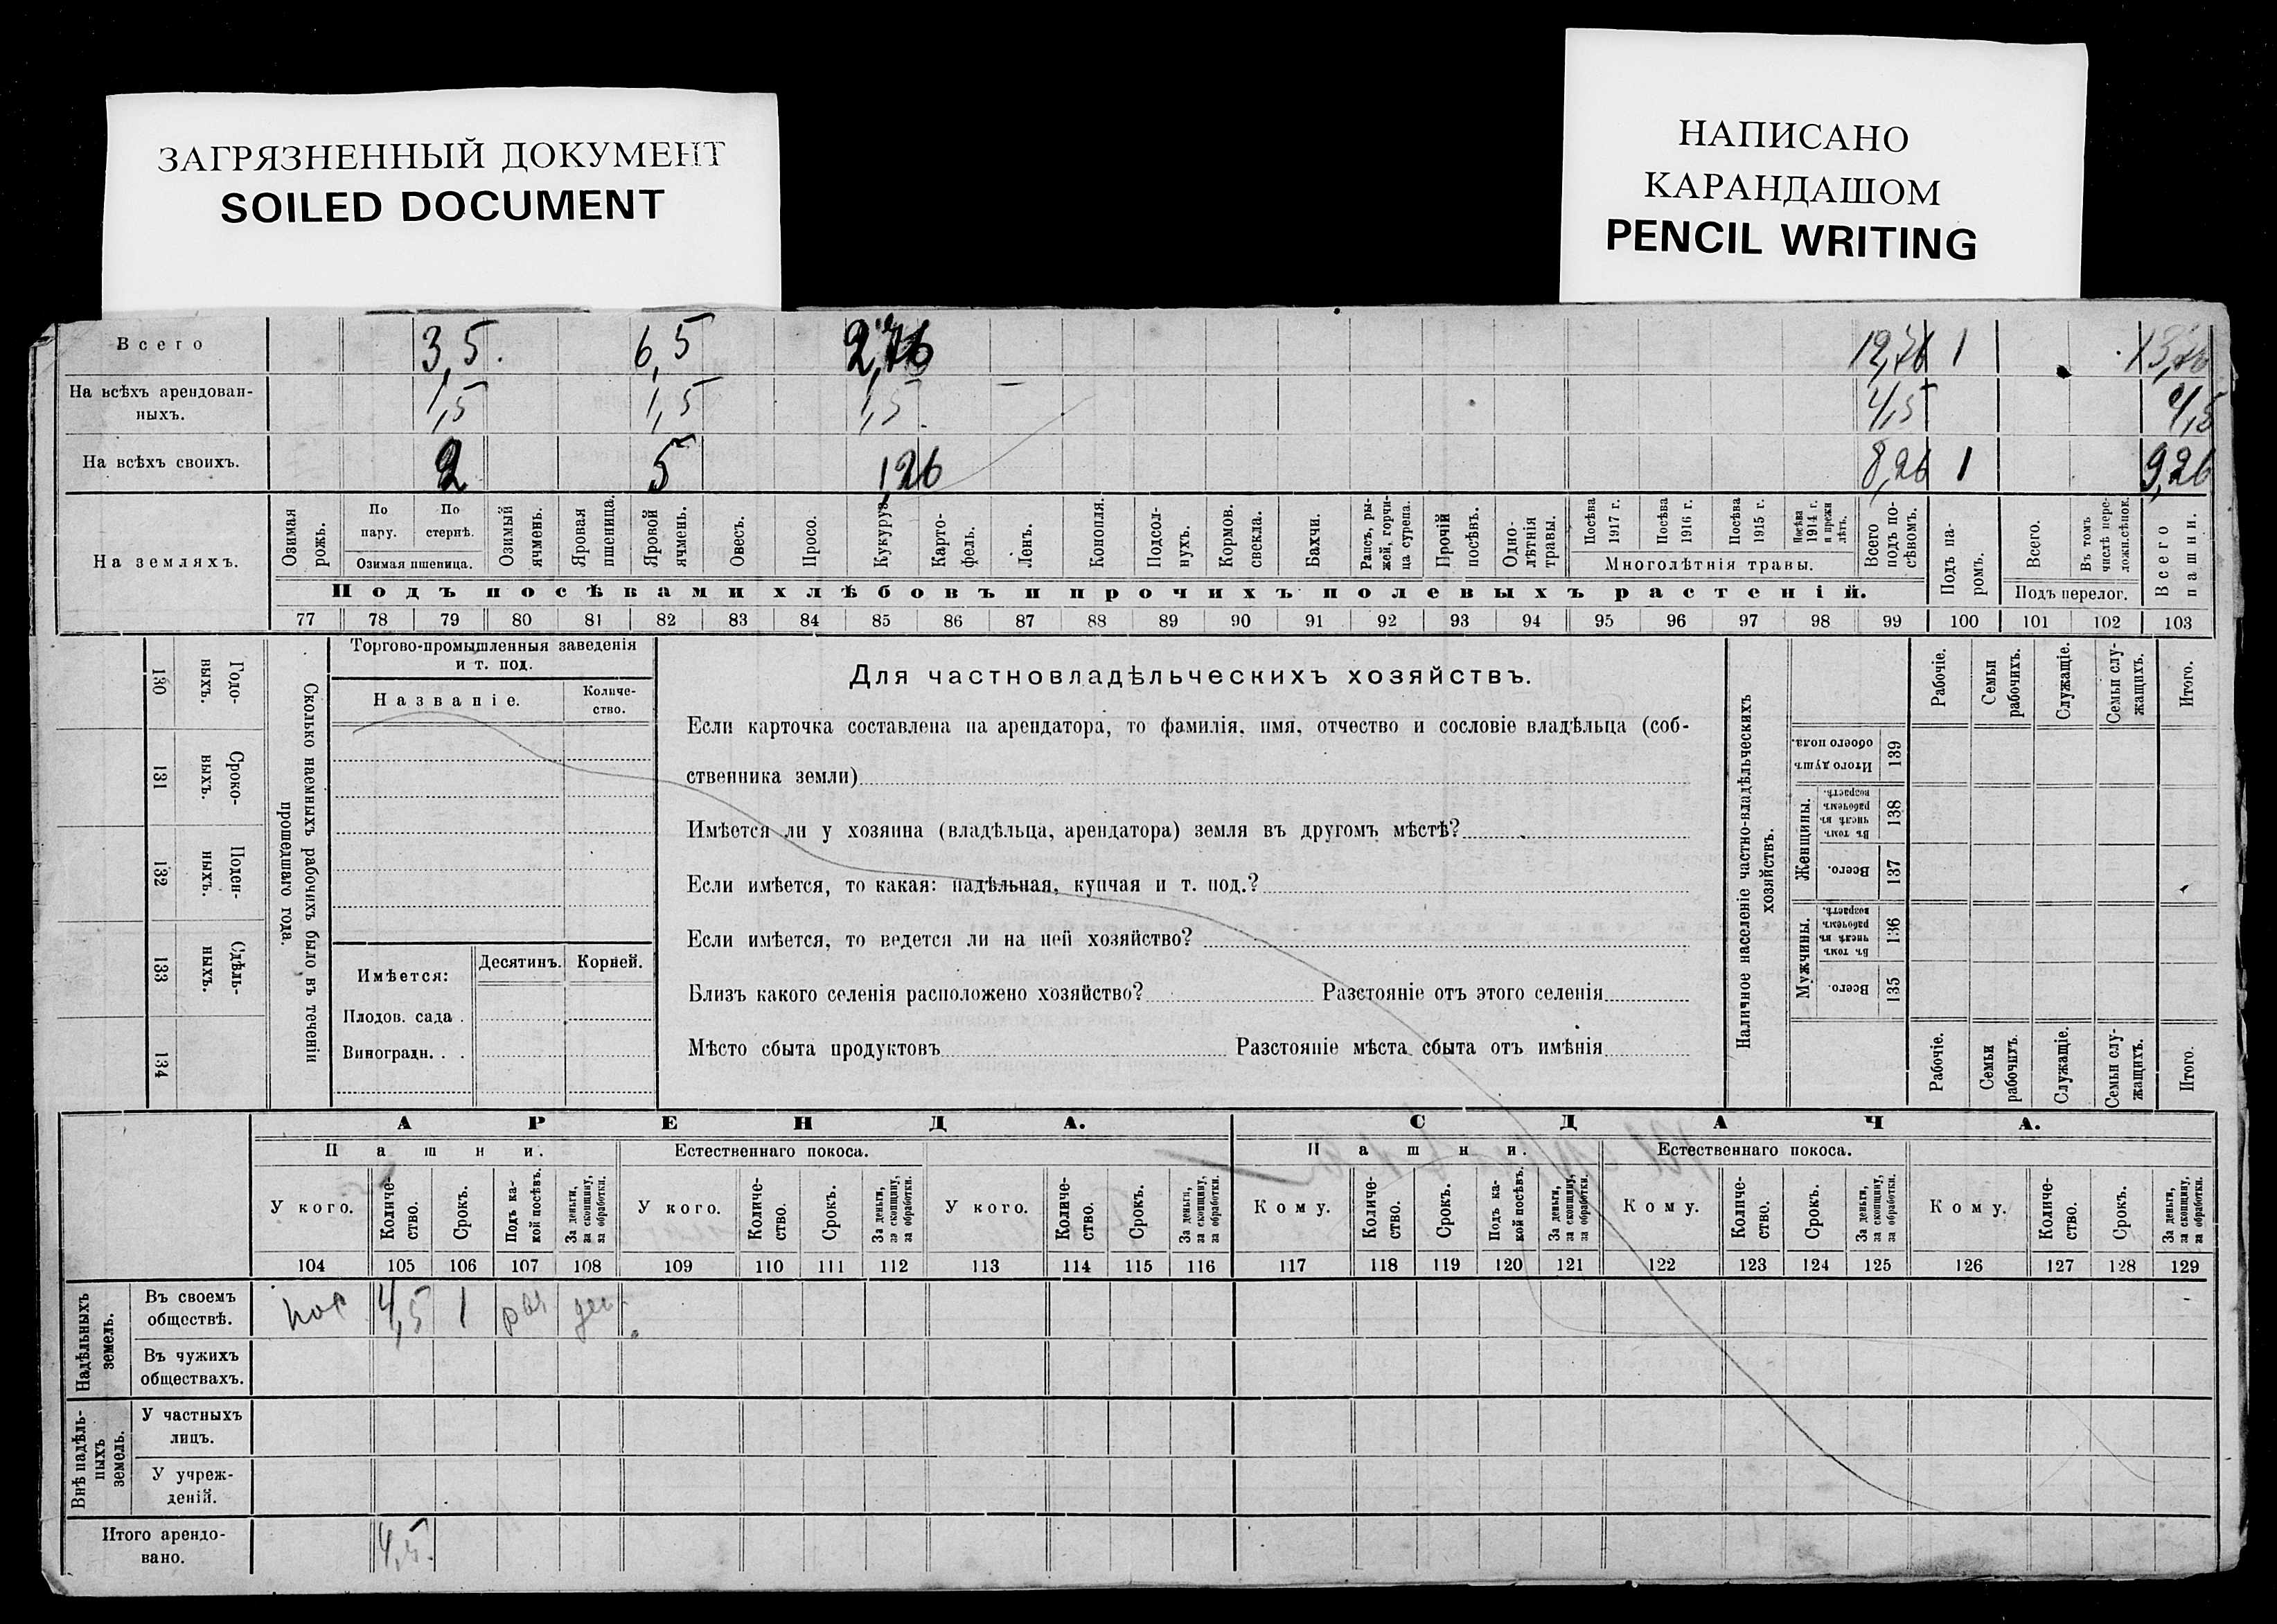 ЗАГРЯЗНЕННЫЙ ДОКУМЕНТ
SOILED DOCUMENT
НАПИСАНО
КАРАНДАШОМ
PENCIL WRITING
Всего 3,5. 6,5 2,76 12,76 1
На всѣхъ арендован-
ныхъ. 1,5 1,5 1,5 4,5 4,5
На всѣхъ своихъ. 2 5 1,26 8,26 1 9,26
На земляхъ.
Озимая рожь.
По пару.
По стернѣ.
Озимая пшеница.
Озимый ячмень.
Яровая пшеница.
Яровой ячмень.
Овесъ.
Просо.
Кукуруза.
Карто-
фель.
Ленъ.
Конопля.
Подсол-
нухъ.
Кормов.
свекла.
Бахчи.
Рапсъ, ры-
жей, горчи-
ца сурепа.
Прочій посѣвъ.
Одно-
лѣтнія травы.
Посѣва 1917 г.
Посѣва 1916 г.
Посѣва 1915 г.
Посѣва 1914 г. и прежн лѣтъ.
Многолѣтнія травы.
Всего подъ по-
сѣвомъ.
Подъ па-
ромъ.
Всего.
Въ томъ числѣ пере-
ложн.сѣнок.
Подъ перелог.
Всего пашни.
Подъ посѣвами хлѣбовъ и прочихъ полевыхъ растеній.
77 78 79 80 81 82 83 84 85 86 87 88 89 90 91 92 93 94 95 96 97 98 99 100 101 102 103
130 Годо-
ныхъ.
131 Сроко-
ныхъ.
132 Поден-
ныхъ.
133 Сдѣль-
ныхъ.
134
Сколько наемныхъ рабочихъ было въ теченіи
прошедшаго года.
Торгово-промышленныя заведенія
и т. под.
Названіе.
Количе-
ство.
Имѣется:
Десятинъ.
Корней.
Плодов. сада .
Виноградн. . .
Для частновладѣльческихъ хозяйствъ.
Если карточка составлена на арендатора, то фамилія, имя, отчество и сословіе владѣльца (соб-
ственника земли)
Имѣется ли у хозяина (владѣльца, арендатора) земля въ другомъ мѣстѣ?
Если имѣется, то какая: надѣльная, купчая и т. под.?
Если имѣется, то ведется ли на ней хозяйство?
Близъ какого селенія расположено хозяйство? Разстояніе отъ этого селенія
Мѣсто сбыта продуктовъ Разстояніе мѣста сбыта отъ имѣнія
Наличное населеніе частно-владѣльческихъ
хозяйствъ.
Рабочіе.
Семьи рабочихъ.
Служащіе.
Семьи слу-
жащихъ.
Итого.
Итого душъ обоего пола. 139
Женщины.
Въ томъ числѣ въ рабочемъ возрастѣ. 138
Всего. 137
Мужчины.
Въ томъ числѣ въ рабочемъ возрастѣ. 136
Всего. 135
Рабочіе.
Семьи рабочихъ.
Служащіе.
Семьи слу-
жащихъ.
Итого.
АРЕНДА. СДАЧА.
Пашни. Естественнаго покоса. Пашни. Естественнаго покоса.
У кого.
Количе-
ство.
Срокъ.
Подъ ка-
кой посѣвъ.
За деньги,
за скопщину,
за обработки.
У кого.
Количе-
ство.
Срокъ.
За деньги,
за скопщину,
за обработки.
У кого.
Количе-
ство.
Срокъ.
За деньги,
за скопщину,
за обработки.
Кому.
Количе-
ство.
Срокъ.
Подъ ка-
кой посѣвъ.
За деньги,
за скопщину,
за обработки.
Кому.
Количе-
ство.
Срокъ.
За деньги,
за скопщину,
за обработки.
Кому.
Количе-
ство.
Срокъ.
За деньги,
за скопщину,
за обработки.
104 105 106 107 108 109 110 111 112 113 114 115 116 117 118 119 120 121 122 123 124 125 126 127 128 129
Надѣльныхъ
земель.
Въ своемъ
обществѣ. 4,5 1 ден.
Въ чужихъ
обществахъ.
Внѣ надѣль-
ныхъ
земель.
У частныхъ
лицъ.
У учреж-
деній.
Итого арендо-
вано. 4,5.